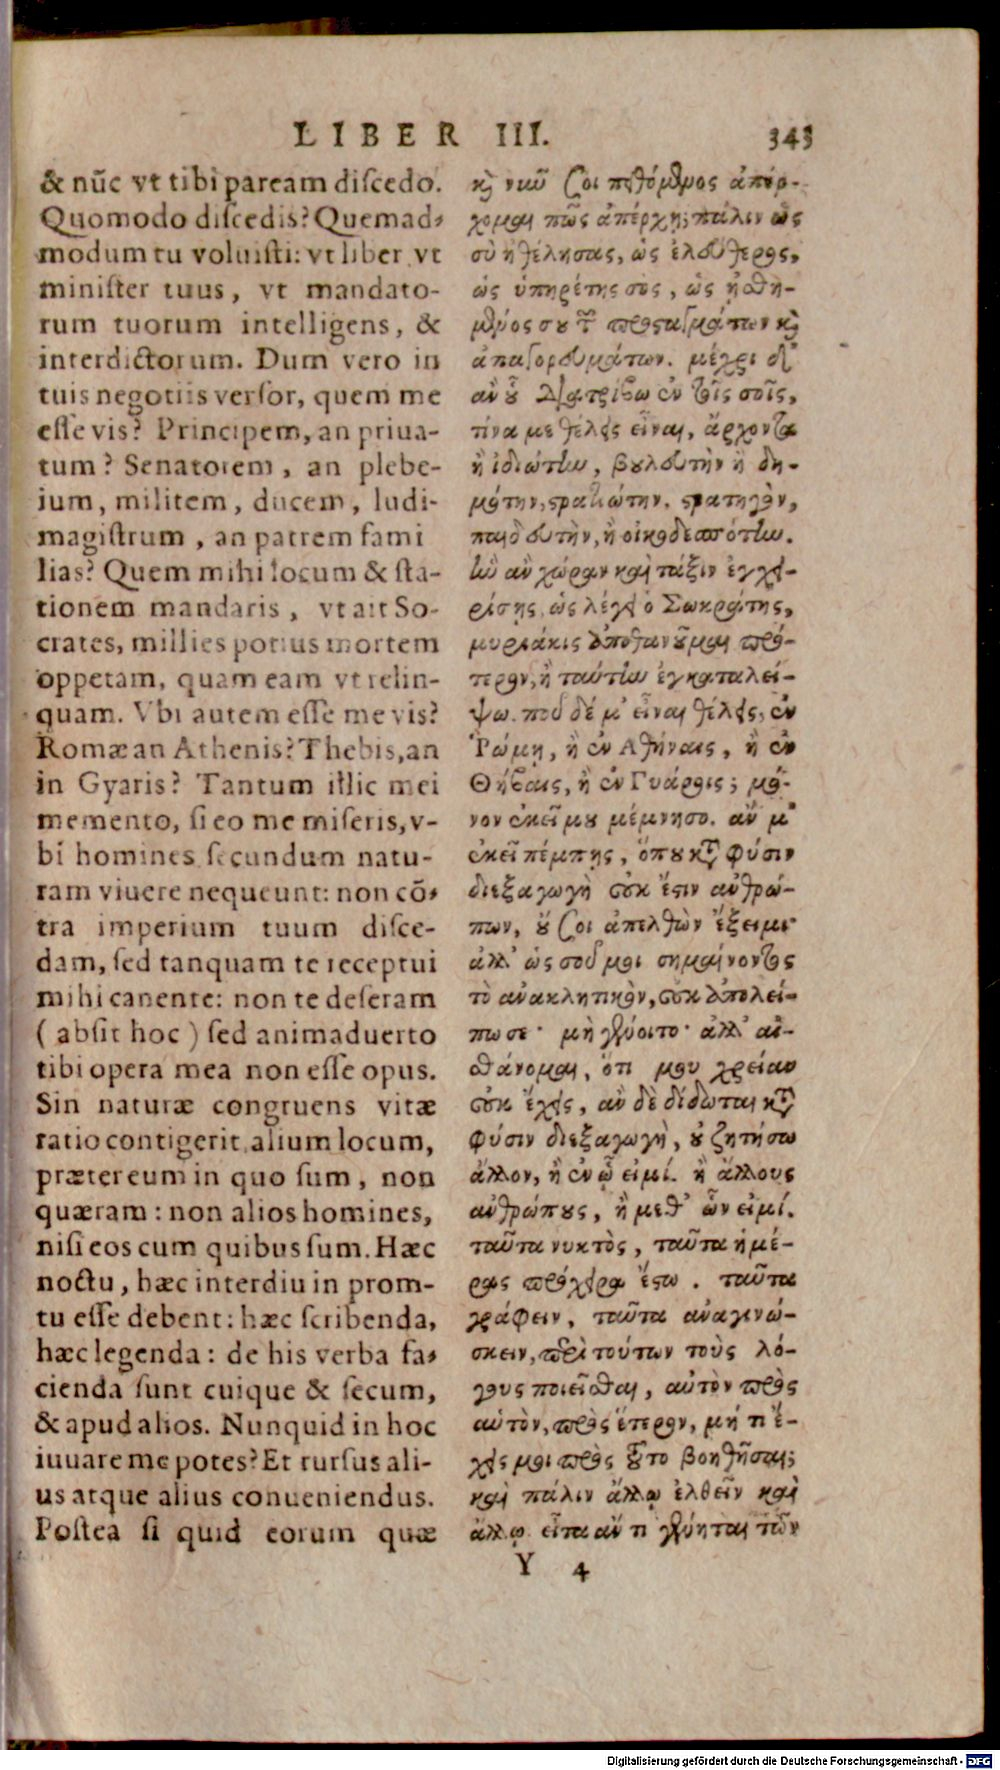 LIBER III. 343
& nūc vt tibi paream diſcedo.
Quomodo diſcedis? Quemad-
modum tu voluiſti: vt liber vt
miniſter tuus, vt mandato-
rum tuorum intelligens, &
interdictorum. Dum vero in
tuis negotiis verſor, quem me
eſſe vis? Principem, an priua-
tum? Senatorem, an plebe-
ium, militem, ducem, ludi-
magiſtrum, an patrem fami
lias? Quem mihi locum & ſta-
tionem mandaris, vt ait So-
crates, millies potius mortem
oppetam, quam eam vt relin-
quam. Vbi autem eſſe me vis?
Romæ an Athenis? Thebis, an
in Gyaris? Tantum illic mei
memento, ſi eo me miſeris, v-
bi homines ſecundum natu-
ram viuere nequeunt: non cō-
tra imperium tuum diſce-
dam, ſed tanquam te receptui
mihi canente: non te deſeram
(abſit hoc) ſed animaduerto
tibi opera mea non eſſe opus.
Sin naturæ congruens vitæ
ratio contigerit, alium locum,
præter eum in quo ſum, non
quæram: non alios homines,
niſi eos cum quibus ſum. Hæc
noctu, hæc interdiu in prom-
tu eſſe debent: hæc ſcribenda,
hæc legenda: de his verba fa-
cienda ſunt cuique & ſecum,
& apud alios. Nunquid in hoc
iuuare me potes? Et rurſus ali-
us atque alius conueniendus.
Poſtea ſi quid eorum quæ
καὶ νῦν σοι πειθόμενος ἀπέρ-
χομαι πῶς ἀπέρχῃ; πάλιν ὡς
σὺ ἠθέλησας, ὡς ἐλεύθερος,
ὡς ὑπηρέτης σὸς, ὡς ᾐσθη-
μένος σου τῶν προσταγμάτων καὶ
ἀπαγορευμάτων. μέχρι δ'
ἂν οὗ διατρίβω ἐν τοῖς σοῖς,
τίνα με θέλεις εἶναι, ἄρχοντα
ἢ ἰδιώτην, βουλευτὴν ἢ δη-
μότην, στρατιώτην, στρατηγὸν,
παιδευτὴν, ἢ οἰκοδεσπότην.
ἣν ἂν χώραν καὶ τάξιν ἐγχει-
ρίσῃς, ὡς λέγει ὁ Σωκράτης,
μυριάκις ἀποθανοῦμαι πρό-
τερον, ἢ ταύτην ἐγκαταλεί-
ψω. ποῦ δέ μ' εἶναι θέλεις, ἐν
Ῥώμῃ, ἢ ἐν Ἀθήναις, ἢ ἐν
Θήβαις, ἢ ἐν Γυάροις; μό-
νον ἐκεῖ μου μέμνησο. ἄν μ'
ἐκεῖ πέμπῃς, ὅπου κατὰ φύσιν
διεξαγωγὴ οὐκ ἔστιν ἀνθρώ-
πων, οὔ σοι ἀπειθὼν ἔξειμι·
ἀλλ' ὡς σοῦ μοι σημαίνοντος
τὸ ἀνακλητικὸν, οὐκ ἀπολεί-
πω σε· μὴ γένοιτο· ἀλλ' αἰ-
σθάνομαι, ὅτι μου χρείαν
οὐκ ἔχεις, ἂν δὲ δίδωται κατὰ
φύσιν διεξαγωγὴ, οὐ ζητήσω
ἄλλον, ἢ ἐν ᾧ εἰμί. ἢ ἄλλους
ἀνθρώπους, ἢ μεθ' ὧν εἰμί.
ταῦτα νυκτὸς, ταῦτα ἡμέ-
ρας πρόχειρα ἔστω. ταῦτα
γράφειν, ταῦτα ἀναγινώ-
σκειν, περὶ τούτων τοὺς λό-
γους ποιεῖσθαι, αὐτὸν πρὸς
αὑτὸν, πρὸς ἕτερον, μή τι ἔ-
χεις μοι πρὸς τοῦτο βοηθῆσαι;
καὶ πάλιν ἄλλῳ ἐλθεῖν καὶ
ἄλλῳ. εἶτα ἄν τι γένηται τῶν
Y 4
Digitalisierung gefördert durch die Deutsche Forschungsgemeinschaft - DFG